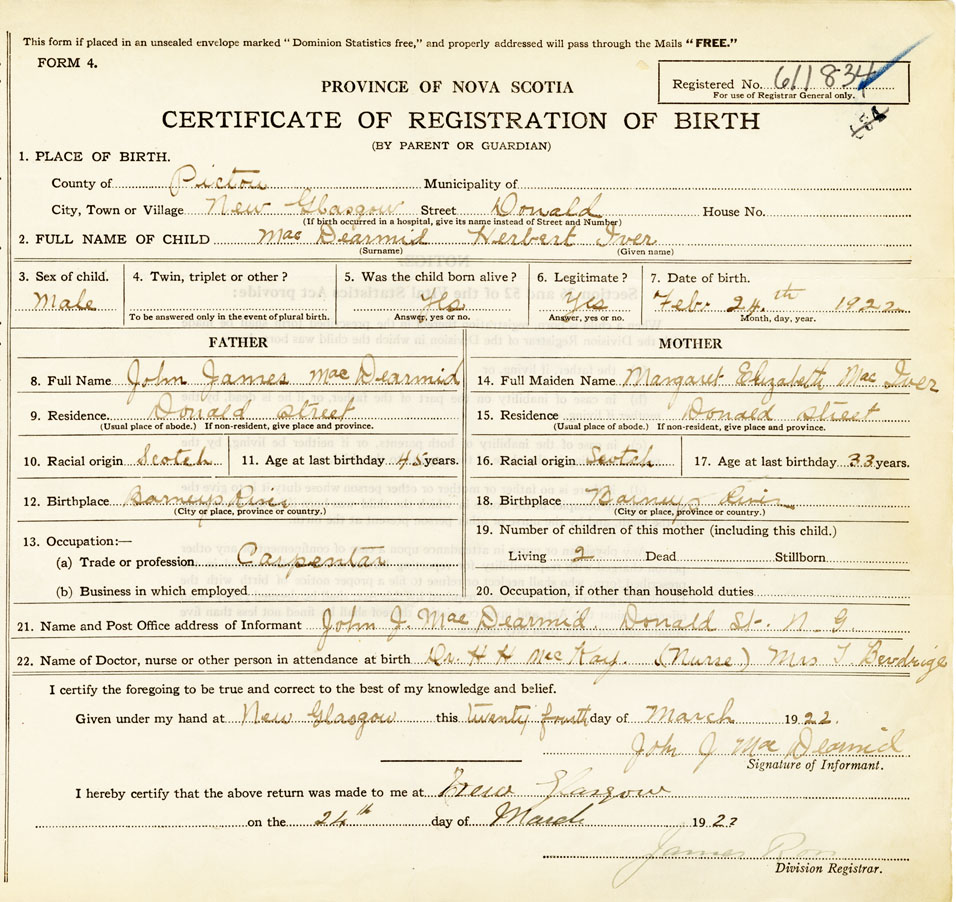 This form if placed in an unsealed envelope marked "Dominion Statistics free," and properly addressed will pass through the Mails "FREE."
FORM 4.
Registered No. 611834
For use of Registrar General only.
PROVINCE OF NOVA SCOTIA
CERTIFICATE OF REGISTRATION OF BIRTH
(BY PARENT OR GUARDIAN)
1. PLACE OF BIRTH.
County of Pictou Municipality of
City, Town or Village New Glasgow Street Donald House No.
(If birth occurred in a hospital, give its name instead of Street and Number)
2. FULL NAME OF CHILD Mac Dearmid Herbert Iver
(Surname) (Given name)
3. Sex of child. 4. Twin, triplet or other? 5. Was the child born alive? 6. Legitimate? 7. Date of birth.
Male Yes Yes Feb. 24th 1922
To be answered only in the event of plural birth. Answer, yes or no. Answer, yes or no. Month, day, year.
FATHER MOTHER
8. Full Name John James Mac Dearmid 14. Full Maiden Name Margaret Elizabeth Mac Iver
9. Residence. Donald street 15. Residence Donald street
(Usual place of abode.) If non-resident, give place and province. (Usual place of abode.) If non-resident, give place and province.
10. Racial origin Scotch 11. Age at last birthday 45 years. 16. Racial origin Scotch 17. Age at last birthday 33 years.
12. Birthplace Barneys River 18. Birthplace Barneys River
(City or place, province or country.) (City or place, province or country.)
13. Occupation:— 19. Number of children of this mother (including this child.)
(a) Trade or profession Carpentar Living 2 Dead Stillborn
(b) Business in which employed 20. Occupation, if other than household duties
21. Name and Post Office address of Informant John J. Mac Dearmid. Donald St. N. G
22. Name of Doctor, nurse or other person in attendance at birth Dr. H H McKay. (Nurse) Mrs T. Bevdrige
I certify the foregoing to be true and correct to the best of my knowledge and belief.
Given under my hand at New Glasgow this twenty fourth day of March 1922.
John J Mac Dearmid
Signature of Informant.
I hereby certify that the above return was made to me at New Glasgow
on the 24th day of March 1922
James
Division Registrar.